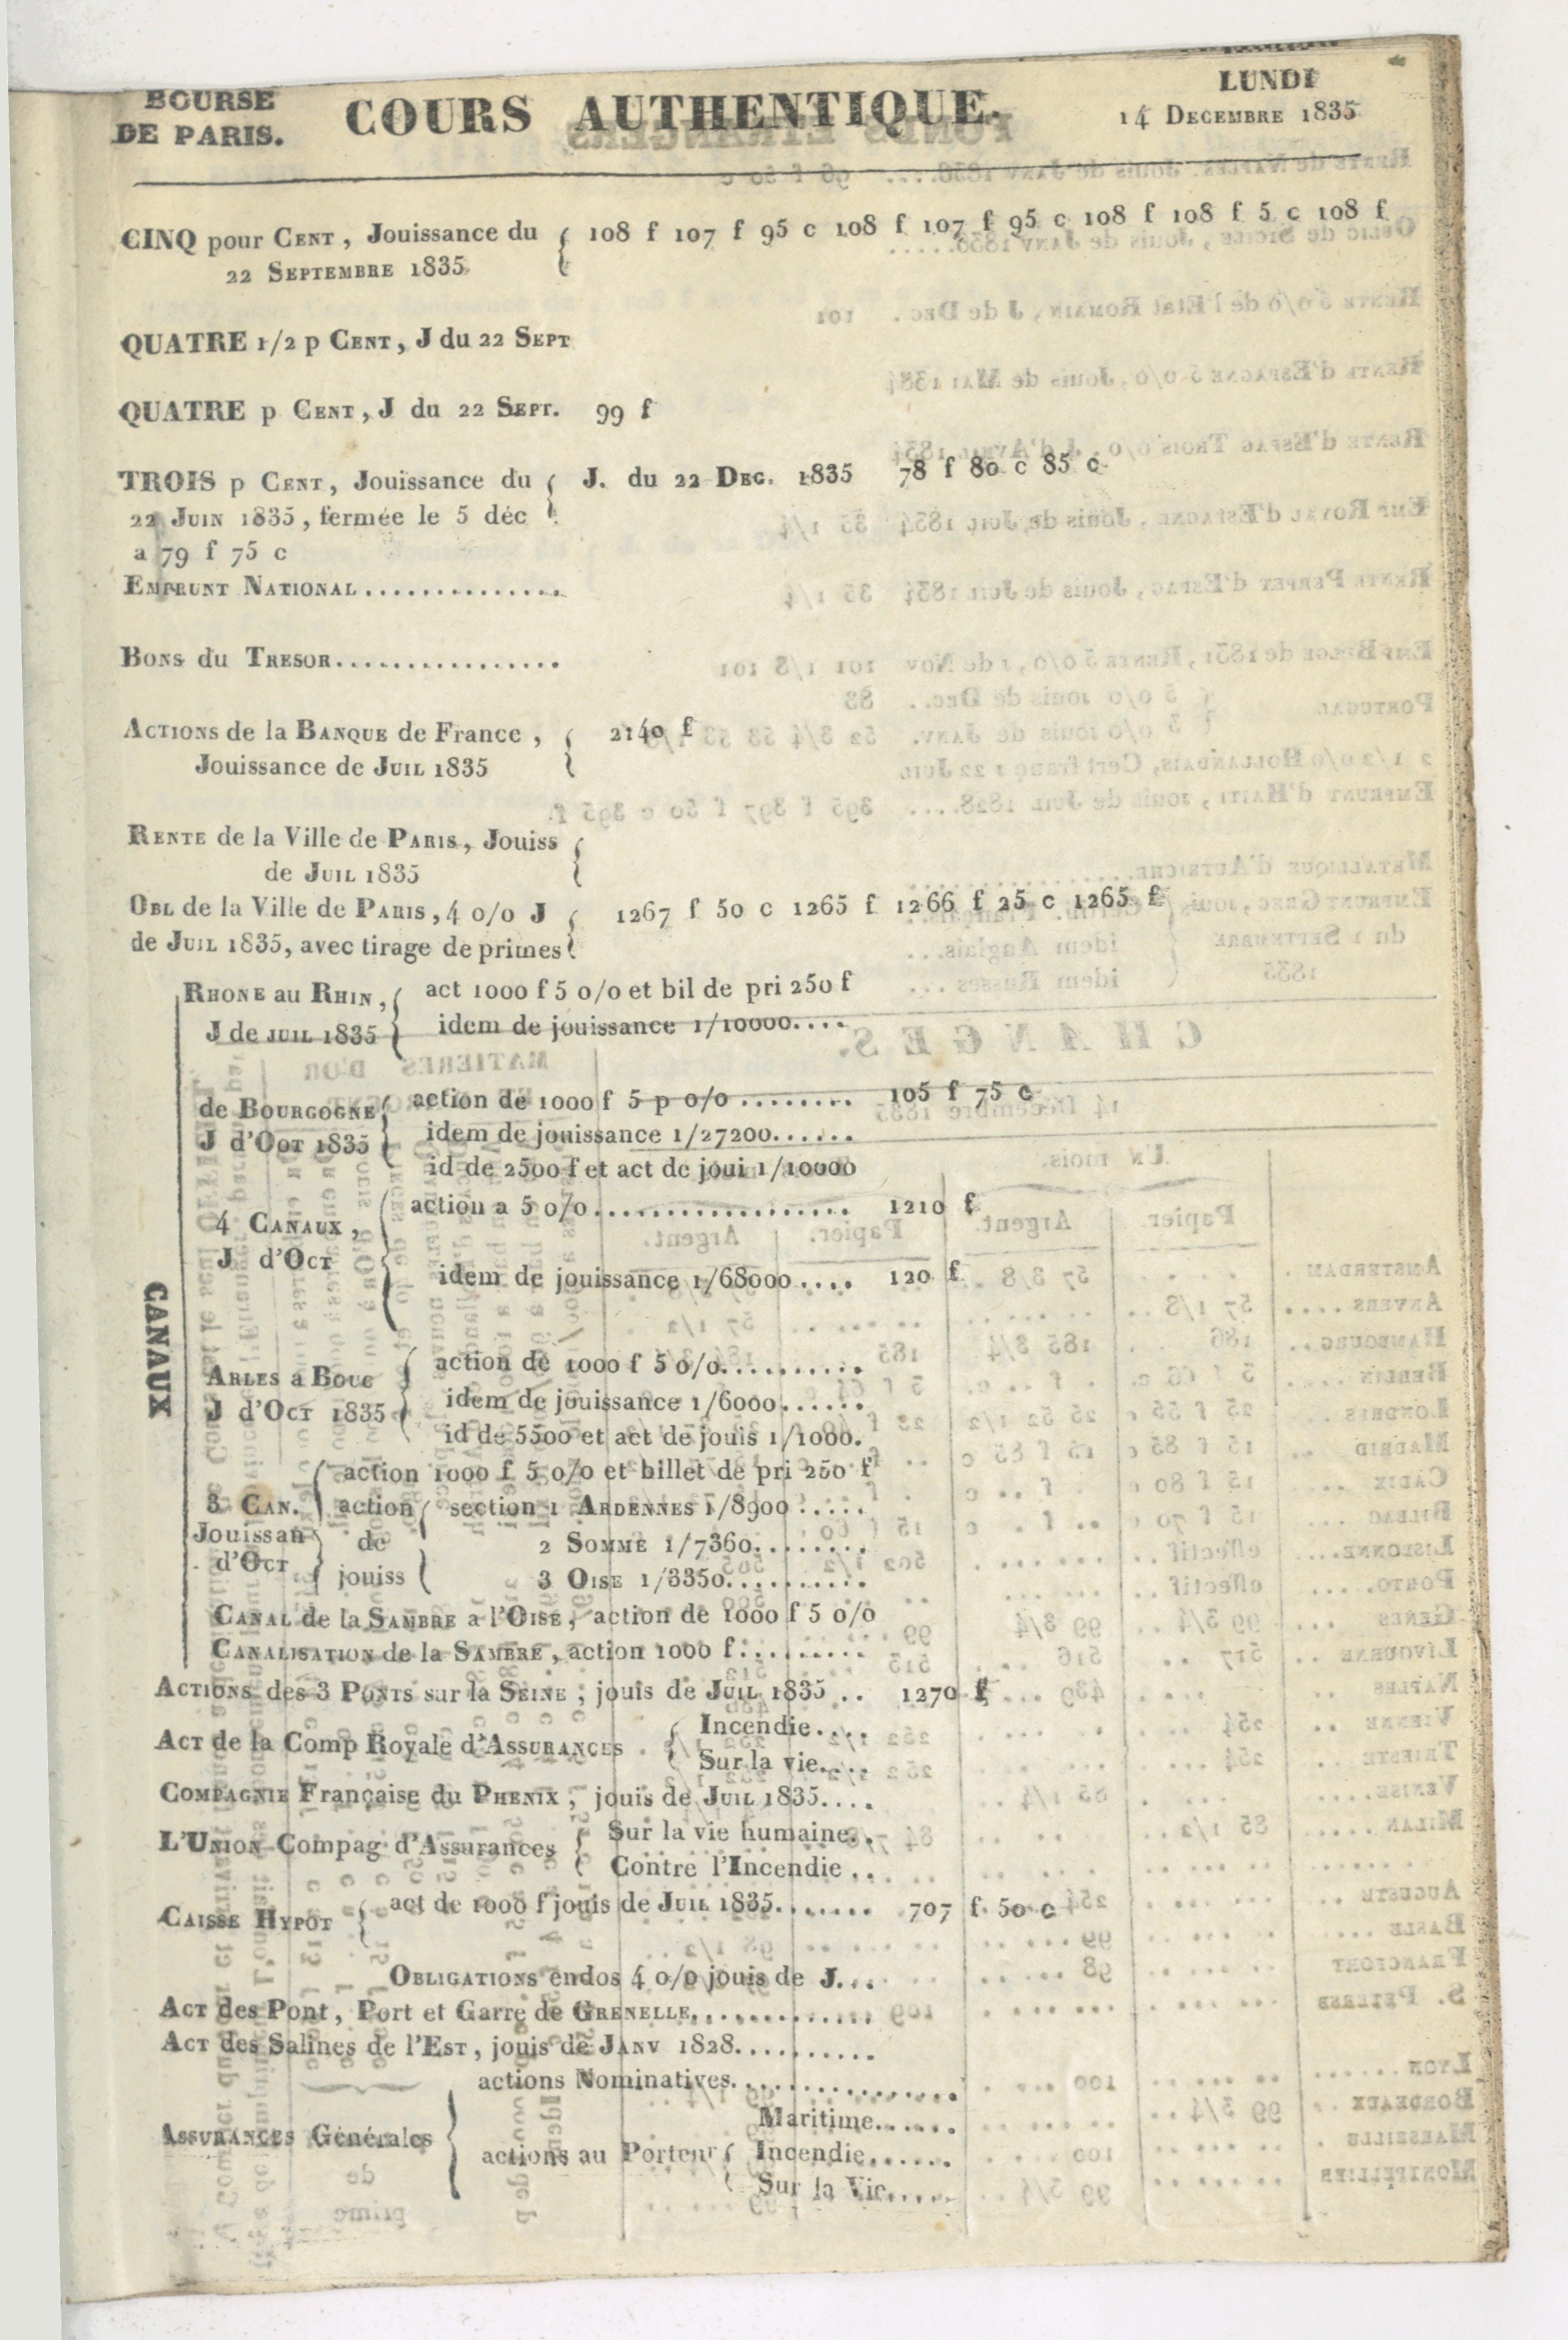 BOURSE
DE PARIS.
COURS AUTHENTIQUE.
LUNDI
14 DECEMBRE 1835
CINQ pour CENT, Jouissance du { 108 f 107 f 95 c 108 f 107 f 95 c 108 f 108 f 5 c 108 f
22 SEPTEMBRE 1835
QUATRE 1/2 p CENT, J du 22 SEPT
QUATRE p CENT, J du 22 SEPT. 99 f
TROIS p CENT, Jouissance du { J. du 22 DEC. 1835 78 f 80 c 85 c
22 JUIN 1835, fermée le 5 déc
a 79 f 75 c
EMPRUNT NATIONAL..............
BONS du TRESOR................
ACTIONS de la BANQUE de France, { 2140 f
Jouissance de JUIL 1835
RENTE de la Ville de PARIS, Jouiss {
de JUIL 1835
OBL de la Ville de PARIS, 4 o/o J { 1267 f 50 c 1265 f 1266 f 25 c 1265 f
de JUIL 1835, avec tirage de primes
CANAUX
RHONE au RHIN, { act 1000 f 5 o/o et bil de pri 250 f
J de JUIL 1835 idem de jouissance 1/10000....
de BOURGOGNE { action de 1000 f 5 p o/o ........ 105 f 75 c
J d'OCT 1835 idem de jouissance 1/27200......
id de 2500 f et act de joui 1/10000
4 CANAUX, { action a 5 o/o.................. 1210 f
J d'OCT idem de jouissance 1/68000.... 120 f
ARLES a BOUC { action de 1000 f 5 o/o..........
J d'OCT 1835 idem de jouissance 1/6000......
id de 5500 et act de jouis 1/1000.
3 CAN. { action 1000 f 5 o/o et billet de pri 250 f
Jouissan action { section 1 ARDENNES 1/8900 .....
d'OCT de 2 SOMME 1/7360........
jouiss 3 OISE 1/3350..........
CANAL de la SAMBRE a l'OISE, action de 1000 f 5 o/o
CANALISATION de la SAMBRE, action 1000 f.........
ACTIONS des 3 PONTS sur la SEINE, jouis de JUIL 1835 .. 1270 f
ACT de la Comp Royale d'ASSURANCES { Incendie....
Sur la vie....
COMPAGNIE Française du PHENIX, jouis de JUIL 1835....
L'UNION Compag d'Assurances { Sur la vie humaine..
Contre l'Incendie ..
CAISSE HYPOT { act de 1000 f jouis de JUIL 1835....... 707 f 50 c
OBLIGATIONS endos 4 o/o jouis de J...
ACT des Pont, Port et Garre de GRENELLE.............
ACT des Salines de l'EST, jouis de JANV 1828..........
ASSURANCES Générales { actions Nominatives................
actions au Porteur { Maritime......
Incendie......
Sur la Vie.....